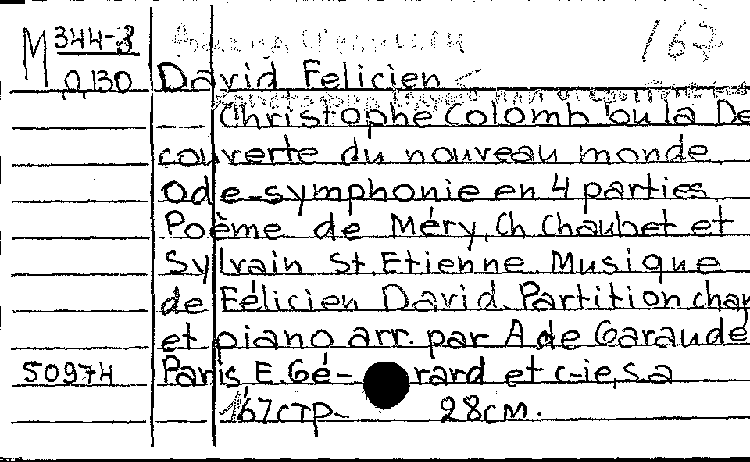 M 344-3 167
0,130 David Felicien
Christophe Colomb ou la De
couverte du nouveau monde
Ode-symphonie en 4 parties
Poème de Méry, Ch Chaubet et
Sylvain St. Etienne Musique
de Félicien David. Partition chan
et piano arr. par A de Garaudé
50974 Paris E. Gé-rard et c-ie, s.a
167 стр. 28 см.